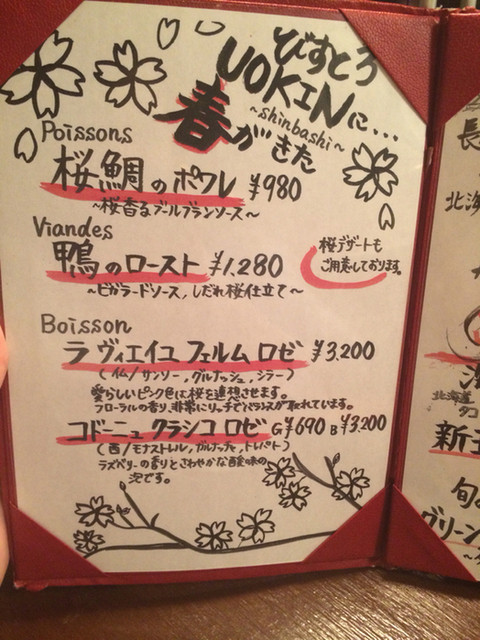 びすとろ
UOKINに...
~shinbashi~
春がきた
Poissons
桜鯛のポワレ ¥980
~桜香るブールブランソース~
Viandes
鴨のロースト ¥1,280
~ビガラードソース,しだれ桜仕立て~
桜デザートも
ご用意しております。
Boisson
ラ ヴィエイユ フェルム ロゼ ¥3,200
(仏/サンソー,グルナッシュ,シラー)
愛らしいピンク色は桜を連想させます。
フローラルの香り,非常にリッチでバランスが取れています。
コドーニュ クラシコ ロゼ G¥690 B¥3,200
(西/モナストレル,ガルナッチャ,トレパト)
ラズベリーの香りとさわやかな酸味の
泡です。
長
北海
北海道
タコ
新玉
旬の
グリーン